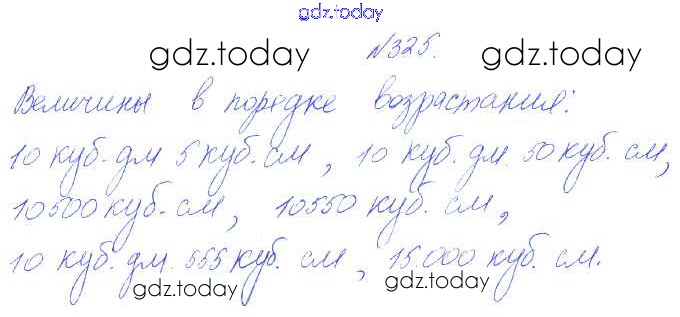 gdz.today
gdz.today №325. gdz.today
Величины в порядке возрастания:
10 куб. дм 5 куб. см, 10 куб. дм 50 куб. см,
10500 куб. см, 10550 куб. см,
10 куб. дм 555 куб. см, 15.000 куб. см.
gdz.today gdz.today